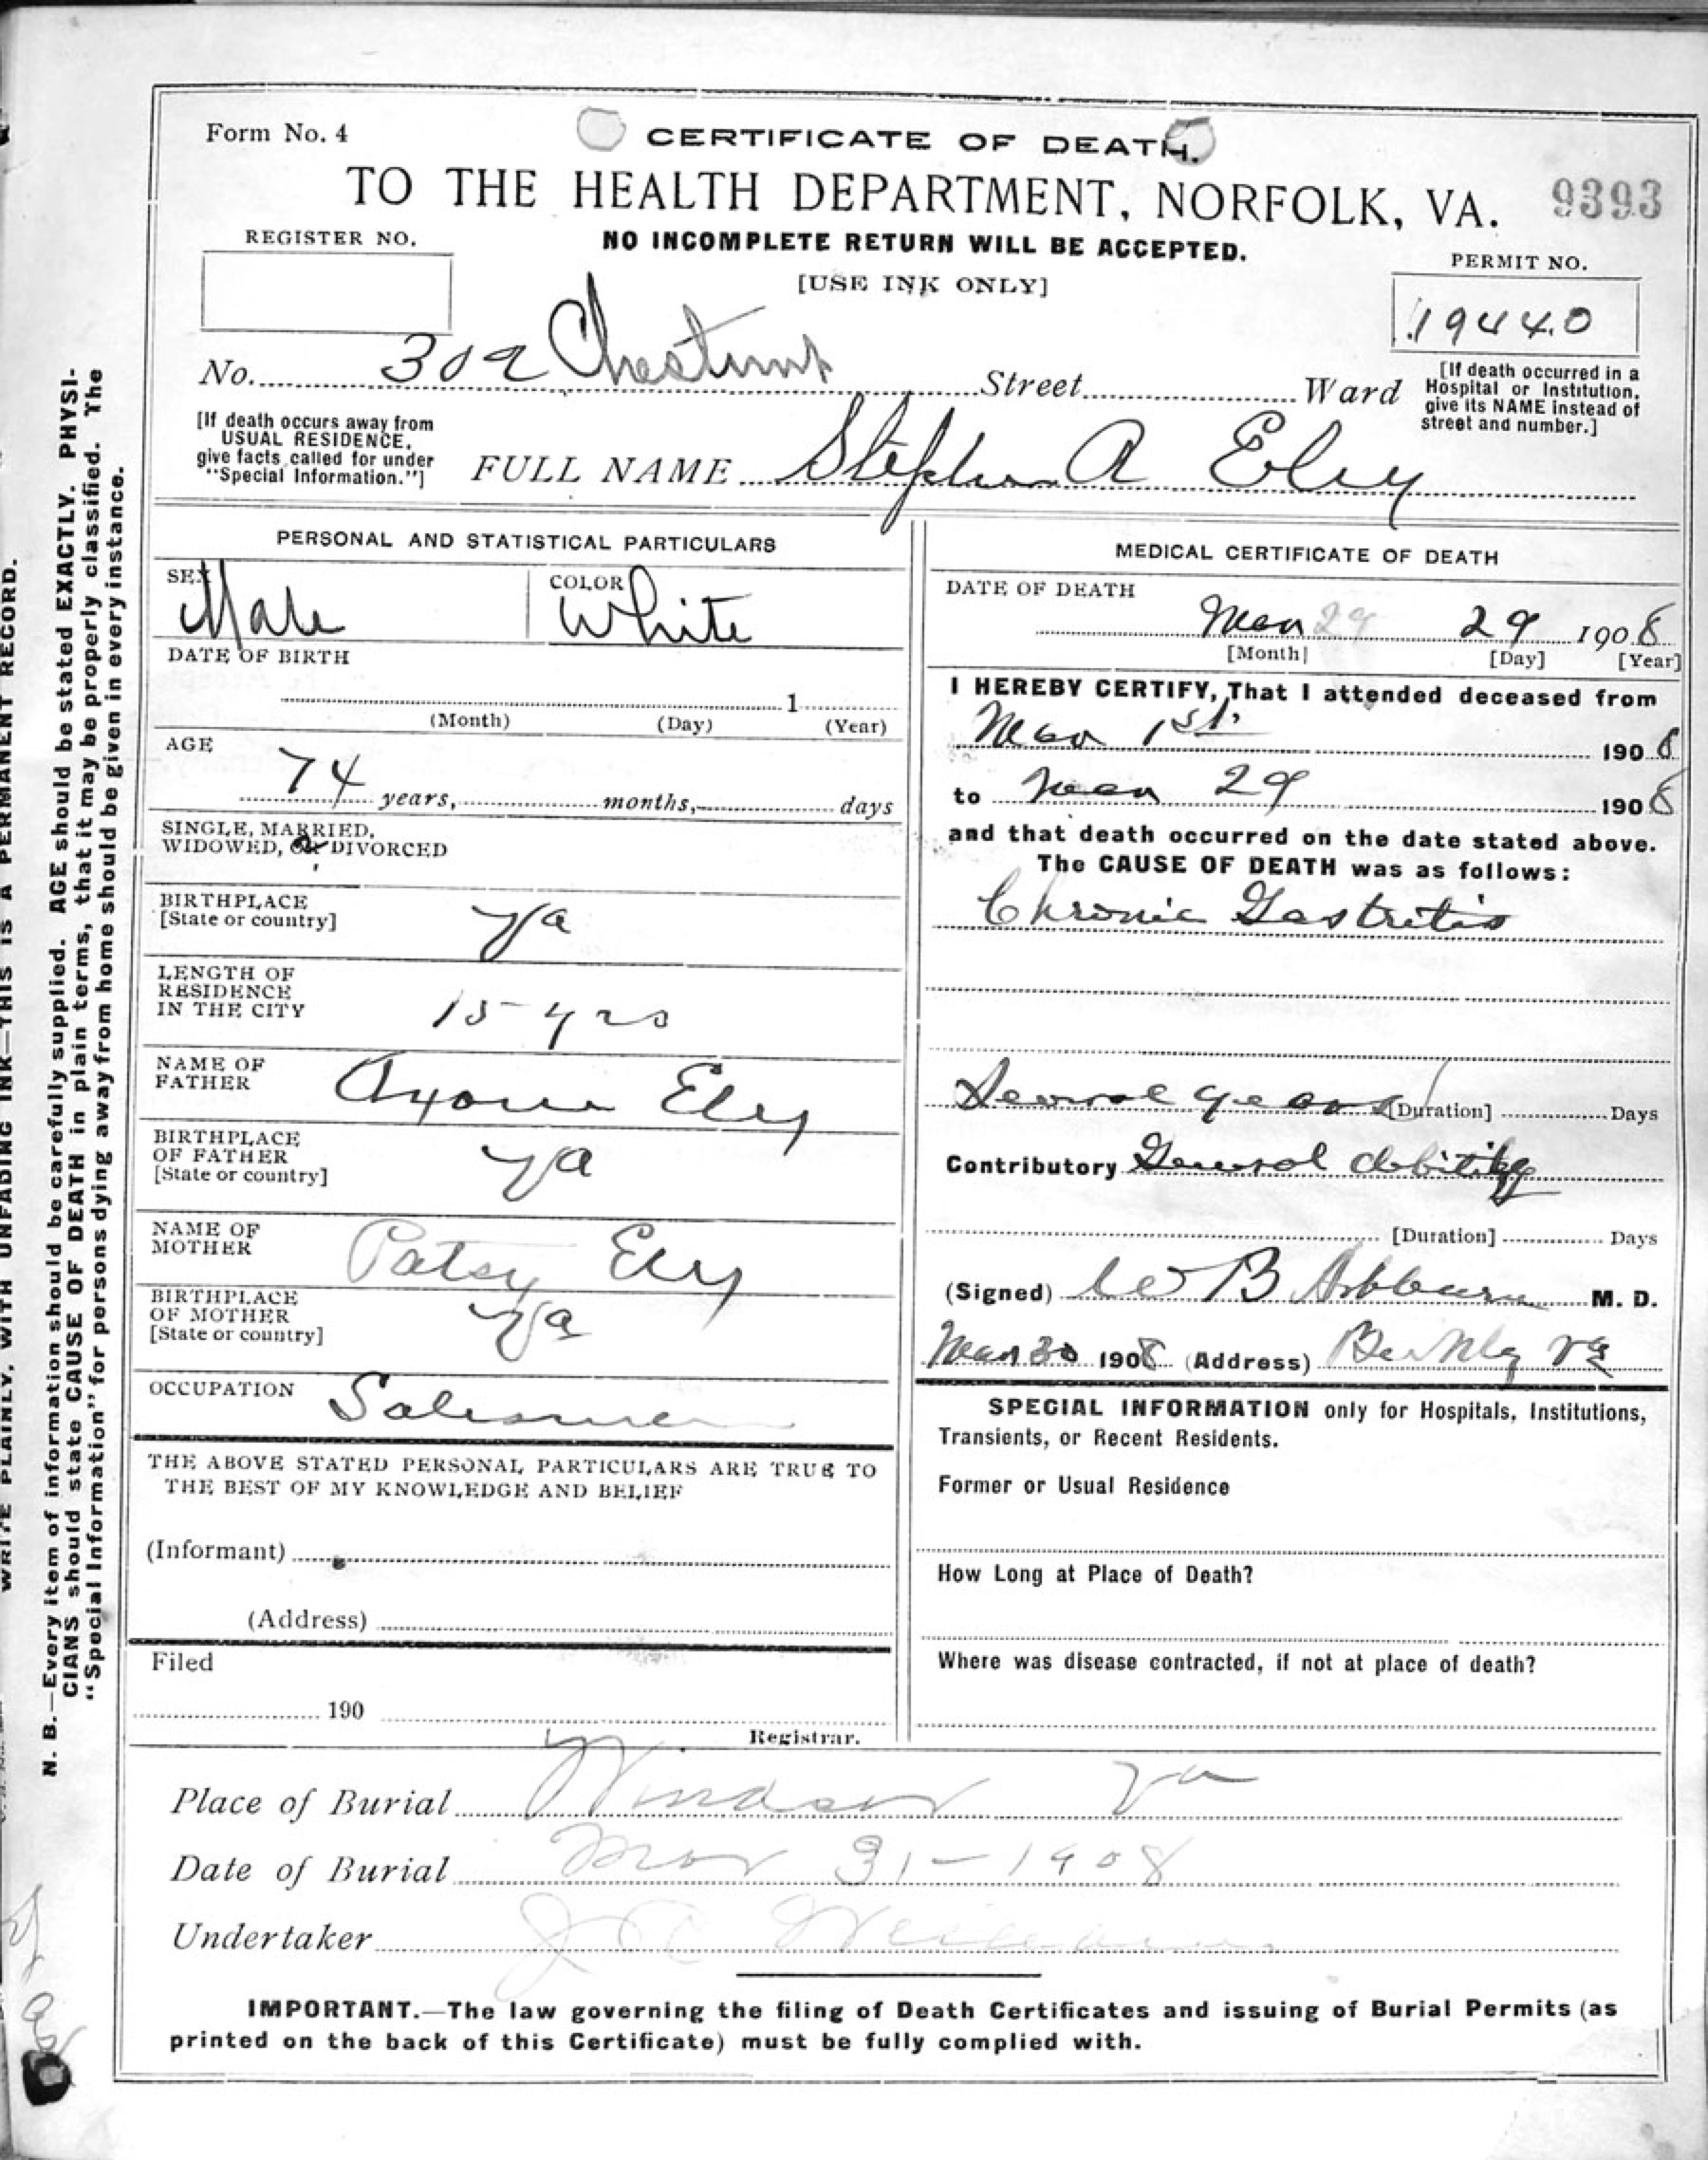 Form No. 4
CERTIFICATE OF DEATH.
TO THE HEALTH DEPARTMENT, NORFOLK, VA.
9393
NO INCOMPLETE RETURN WILL BE ACCEPTED.
[USE INK ONLY]
REGISTER NO.
PERMIT NO.
19440
No. 302 Chestnut Street Ward
[If death occurred in a
Hospital or Institution,
give its NAME instead of
street and number.]
[If death occurs away from
USUAL RESIDENCE,
give facts called for under
"Special Information."]
FULL NAME Stephen A Eley
PERSONAL AND STATISTICAL PARTICULARS
SEX Male
COLOR White
DATE OF BIRTH
1
(Month) (Day) (Year)
AGE
74 years, months, days
SINGLE, MARRIED,
WIDOWED, OR DIVORCED
BIRTHPLACE
[State or country] Va
LENGTH OF
RESIDENCE
IN THE CITY 15 yrs
NAME OF
FATHER Eley
BIRTHPLACE
OF FATHER
[State or country] Va
NAME OF
MOTHER Patsy Eley
BIRTHPLACE
OF MOTHER
[State or country] Va
OCCUPATION Salesman
THE ABOVE STATED PERSONAL PARTICULARS ARE TRUE TO
THE BEST OF MY KNOWLEDGE AND BELIEF
(Informant)
(Address)
Filed
190
Registrar.
MEDICAL CERTIFICATE OF DEATH
DATE OF DEATH
Mar 29 29 1908
[Month] [Day] [Year]
I HEREBY CERTIFY, That I attended deceased from
Mar 1st. 1908
to Mar 29 1908
and that death occurred on the date stated above.
The CAUSE OF DEATH was as follows:
Chronic Gastritis
Several years [Duration] Days
Contributory General debility
[Duration] Days
(Signed) B M. D.
Mar 30 1908 (Address) Berkley Va
SPECIAL INFORMATION only for Hospitals, Institutions,
Transients, or Recent Residents.
Former or Usual Residence
How Long at Place of Death?
Where was disease contracted, if not at place of death?
Place of Burial Windsor Va
Date of Burial Mar 31-1908
Undertaker
IMPORTANT.—The law governing the filing of Death Certificates and issuing of Burial Permits (as
printed on the back of this Certificate) must be fully complied with.
WRITE PLAINLY, WITH UNFADING INK—THIS IS A PERMANENT RECORD.
N. B.—Every item of information should be carefully supplied. AGE should be stated EXACTLY. PHYSI-
CIANS should state CAUSE OF DEATH in plain terms, that it may be properly classified. The
"Special Information" for persons dying away from home should be given in every instance.